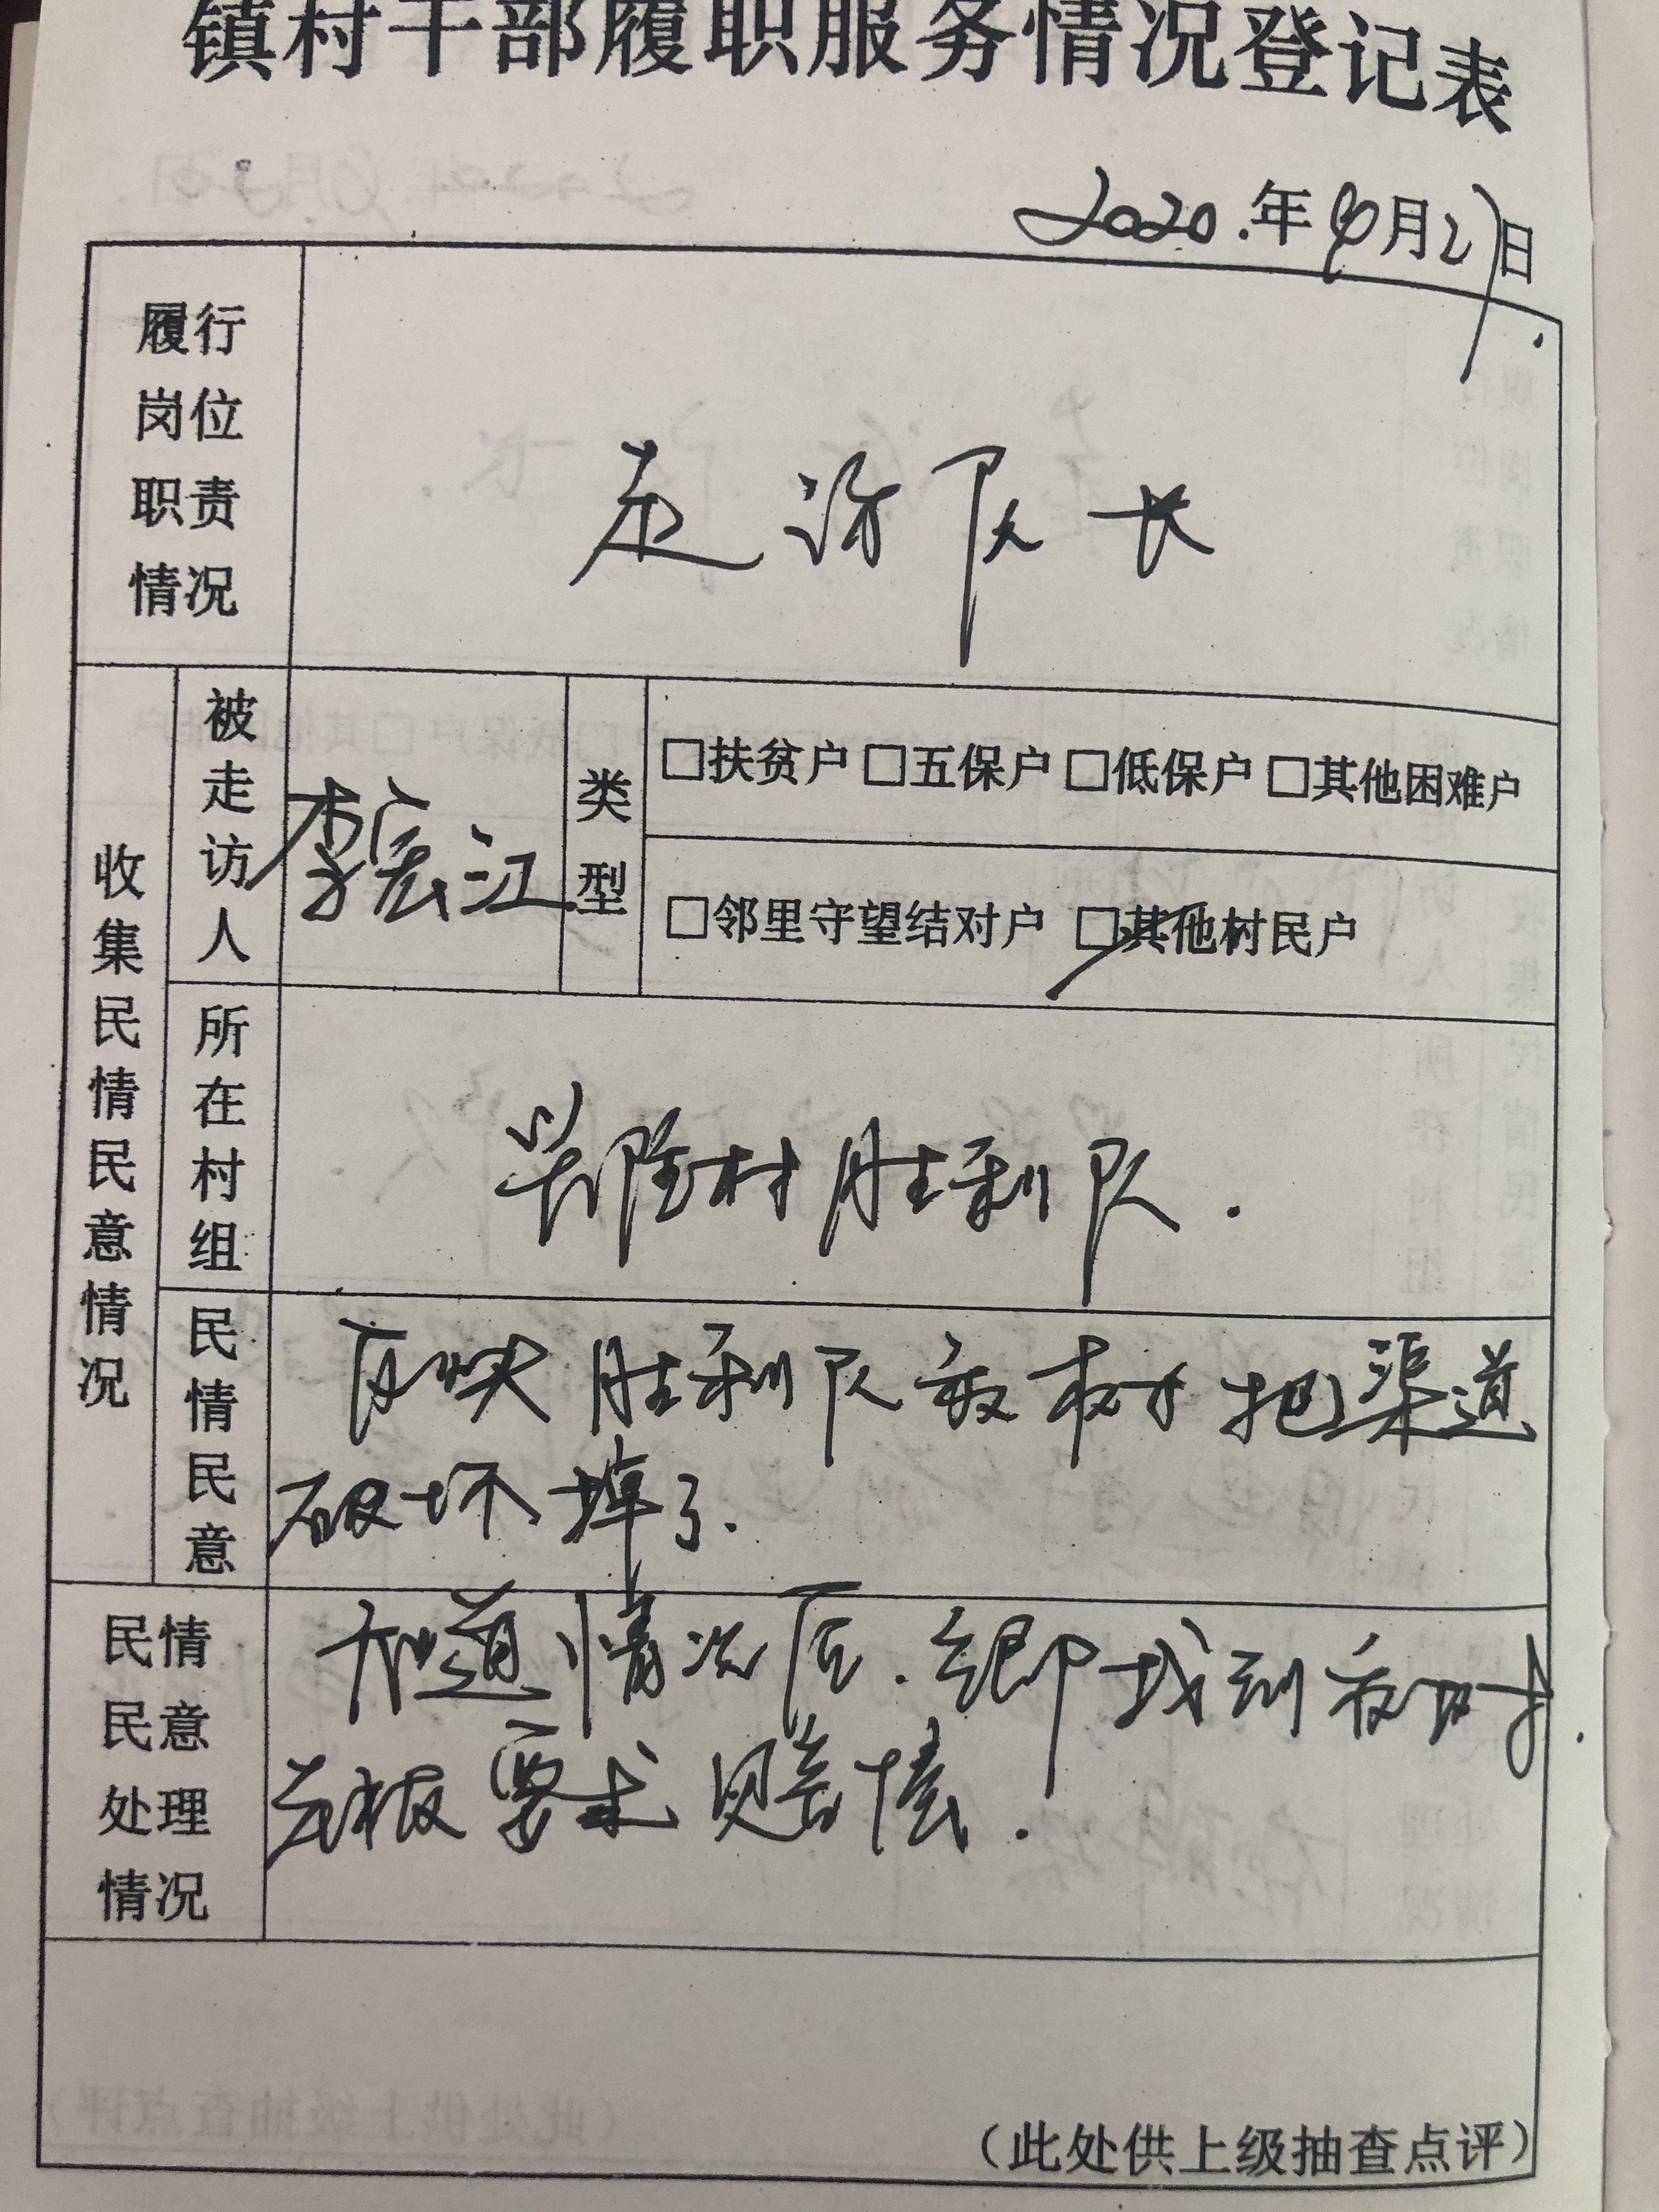 镇村干部履职服务情况登记表
2020.年9月27日
履行岗位职责情况
走访队长
收集民情民意情况
被走访人
李宏江
类型
□扶贫户 □五保户 □低保户 □其他困难户
□邻里守望结对户 □其他村民户
所在村组
村胜利队.
民情民意
反映胜利队放树把渠道
破坏掉了.
民情民意处理情况
知道情况后.立即找到放树
老板要求赔偿.
（此处供上级抽查点评）